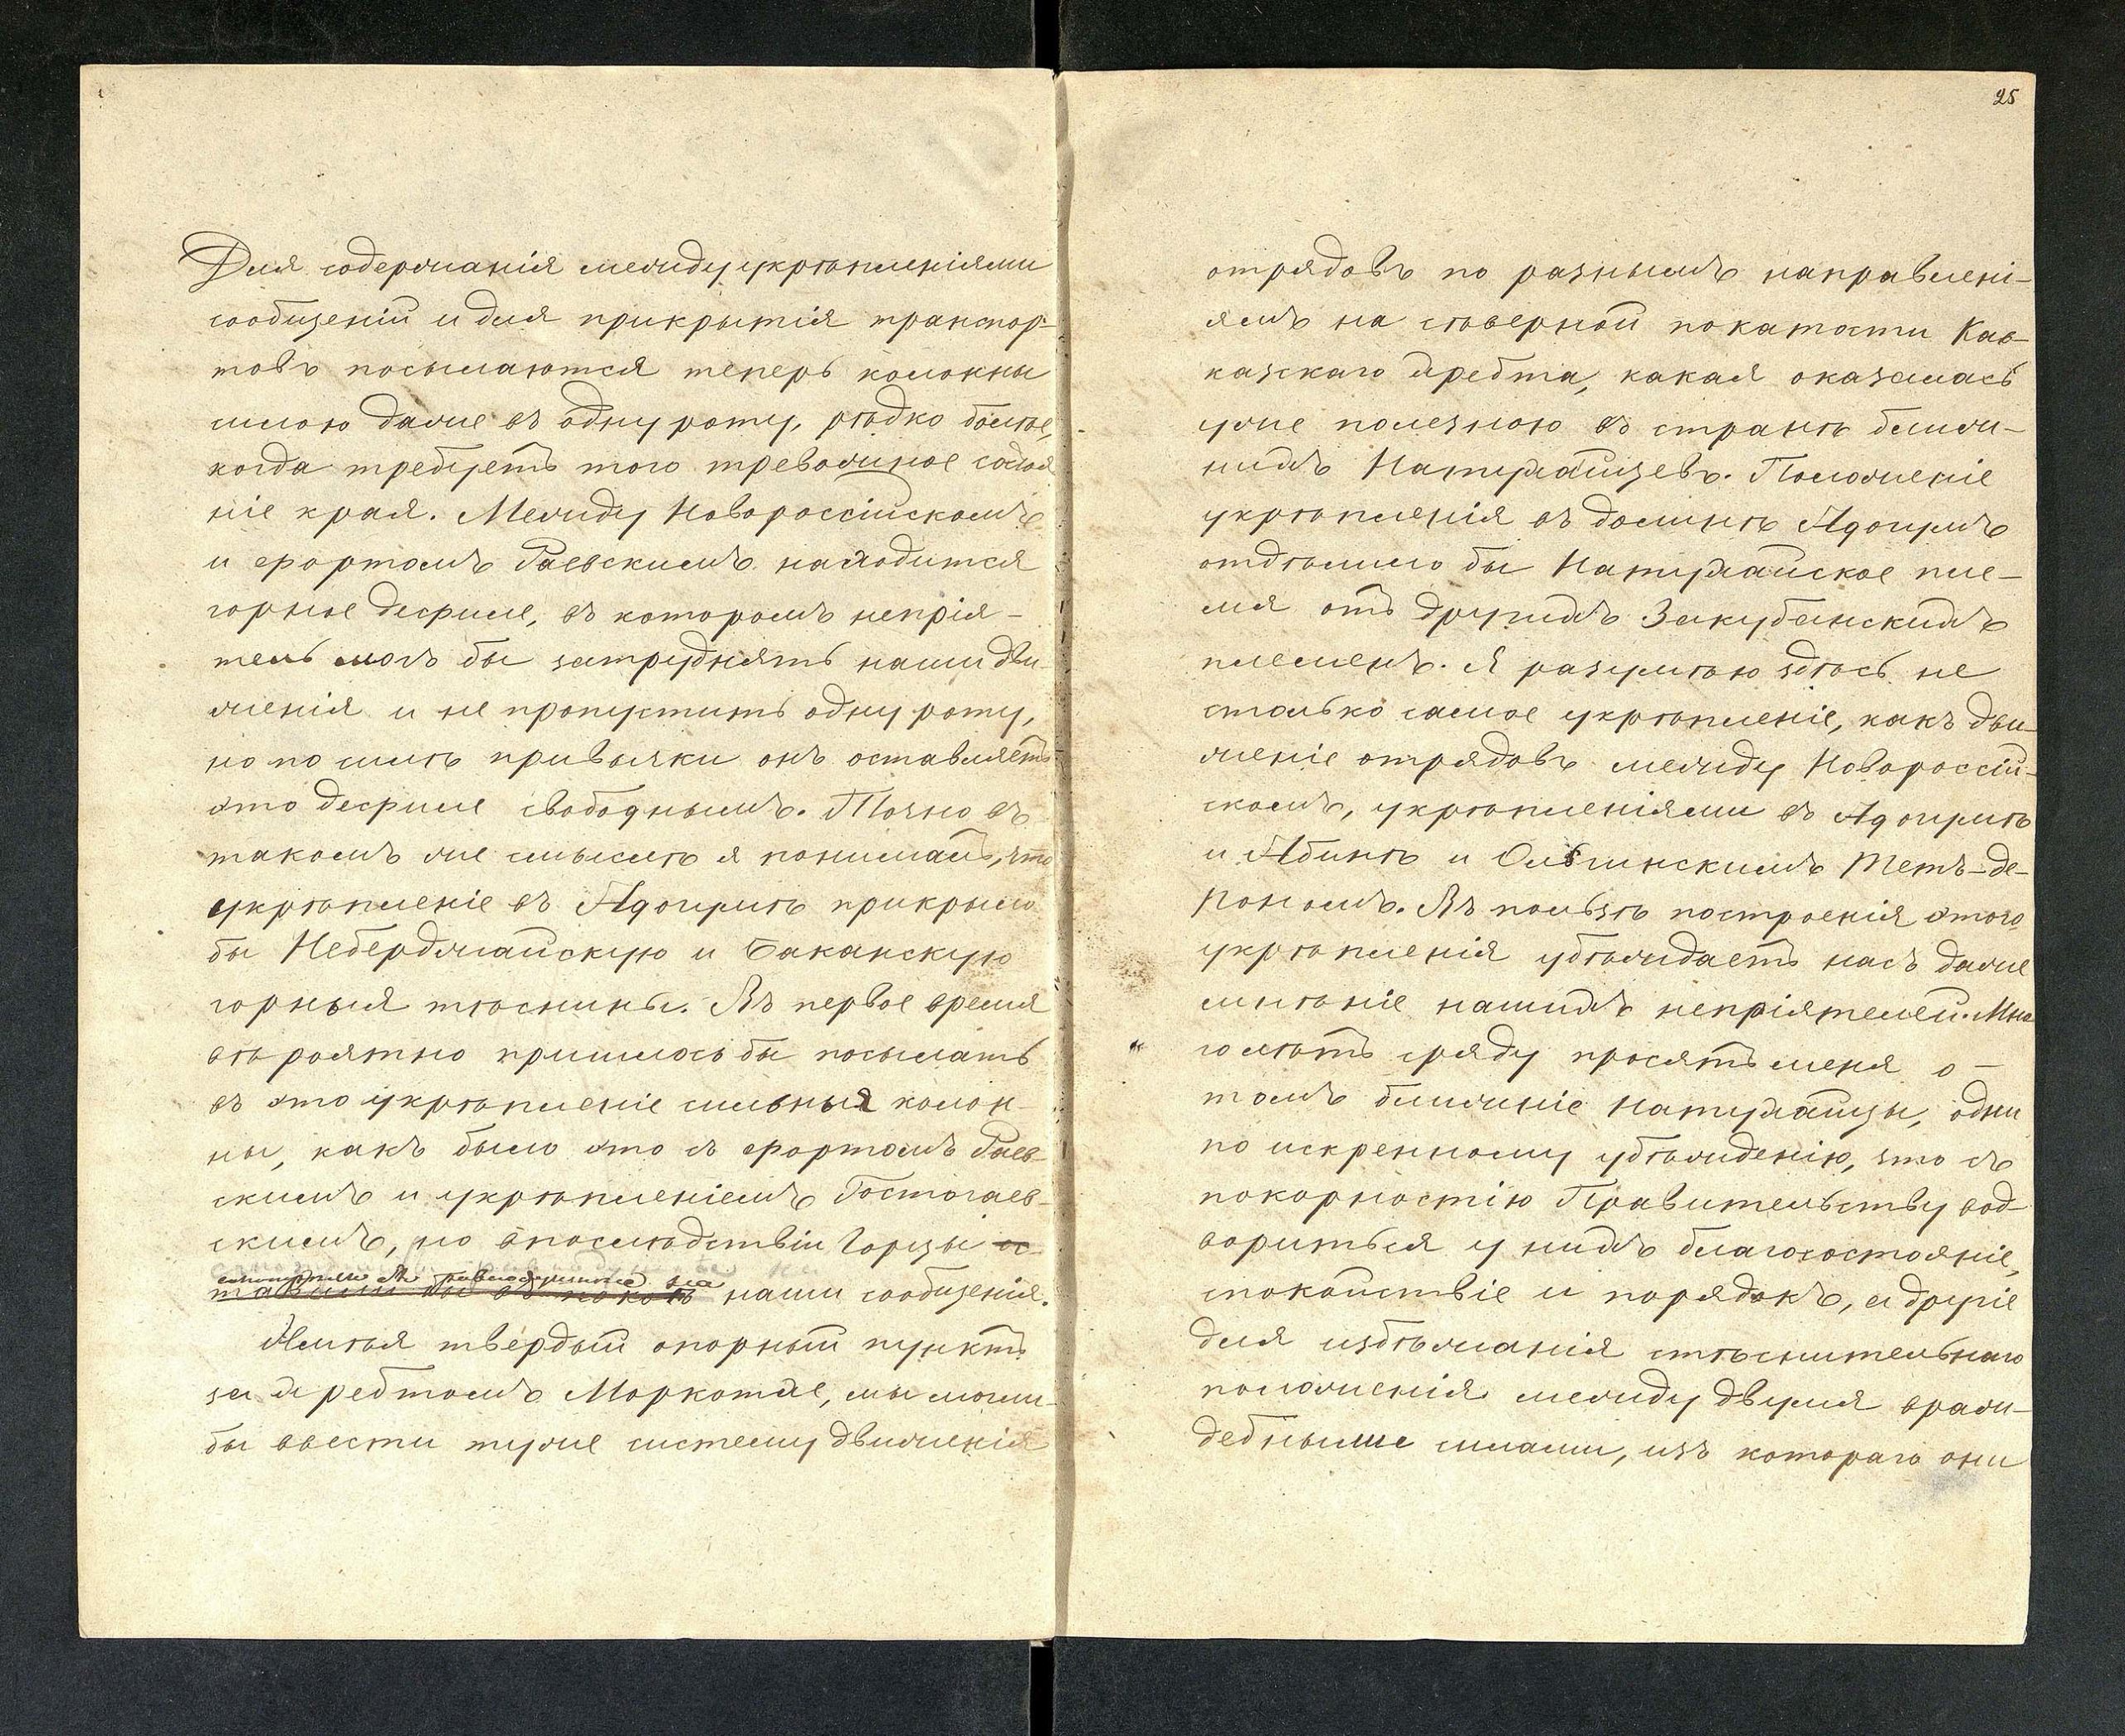 Для содержанія между укрѣпленіями
сообщеній и для прикрытія транспор-
товъ посылаются теперь колонны
силою даже въ одну роту, рѣдко болѣе,
когда требуетъ того тревожное состоя
ніе края. Между Новороссійскомъ
и фортомъ Раевскимъ находится
горное дефиле, въ которомъ непрія-
тель могъ бы затруднять наши дви-
женія и не пропустить одну роту,
но по силѣ привычки онъ оставляетъ
это дефиле свободнымъ. Точно въ
такомъ же смыслѣ я понимаю, что
укрѣпленіе въ Адогумѣ прикрыло
бы Неберджайскую и Баканскую
горныя тѣснины. Въ первое время
вѣроятно пришлось бы посылать
въ это укрѣпленіе сильныя колон-
ны, какъ было это съ фортомъ Раев-
скимъ и укрѣпленіемъ Гостогаев-
скимъ, но впослѣдствіи Горцы ос-
смотрѣли бы равнодушно на
тавили бы въ покоѣ наши сообщенія.
Имѣя твердый опорный пунктъ
за хребтомъ Маркотхе, мы могли
бы ввести туже систему движенія
25
отрядовъ по разнымъ направлені-
ямъ на сѣверной покатости Кав-
казскаго хребта, какая оказалась
уже полезною въ странѣ ближ-
нихъ Натухайцевъ. Положеніе
укрѣпленія въ долинѣ Адогумъ
отдѣлило бы Натухайское пле-
мя отъ другихъ Закубанскихъ
племенъ. Я разумѣю здѣсь не
столько самое укрѣпленіе, какъ дви-
женіе отрядовъ между Новороссій-
скомъ, укрѣпленіями въ Адогумѣ
и Абинѣ и Ольгинскимъ Тетъ-де-
Пономъ. Въ пользѣ построенія этого
укрѣпленія убѣждаетъ насъ даже
мнѣніе нашихъ непріятелей. Мно
го лѣтъ сряду просятъ меня о-
томъ ближніе Натухайцы, одни
по искренному убѣжденію, что съ
покорностію Правительству вод-
вориться у нихъ благосостояніе,
спокойствіе и порядокъ, а другіе
для избѣжанія стѣснительнаго
положенія между двумя враж-
дебными силами, изъ котораго они